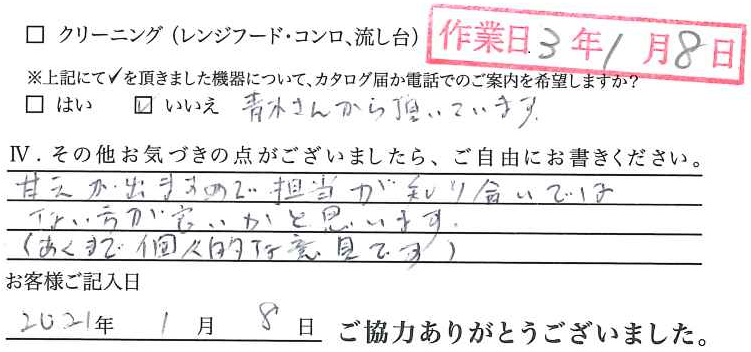 □ クリーニング（レンジフード・コンロ、流し台）
作業日 3年1月8日
※上記にて✓を頂きました機器について、カタログ届か電話でのご案内を希望しますか？
□ はい ☑ いいえ 青木さんから頂いています。
Ⅳ．その他お気づきの点がございましたら、ご自由にお書きください。
甘えが出ますので担当が知り合いでは
ない方が良いかと思います。
（あくまで個人的な意見です）
お客様ご記入日
2021年 1月 8日 ご協力ありがとうございました。